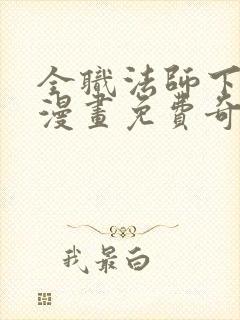 全職法師下
漫畫免費奇
我最白